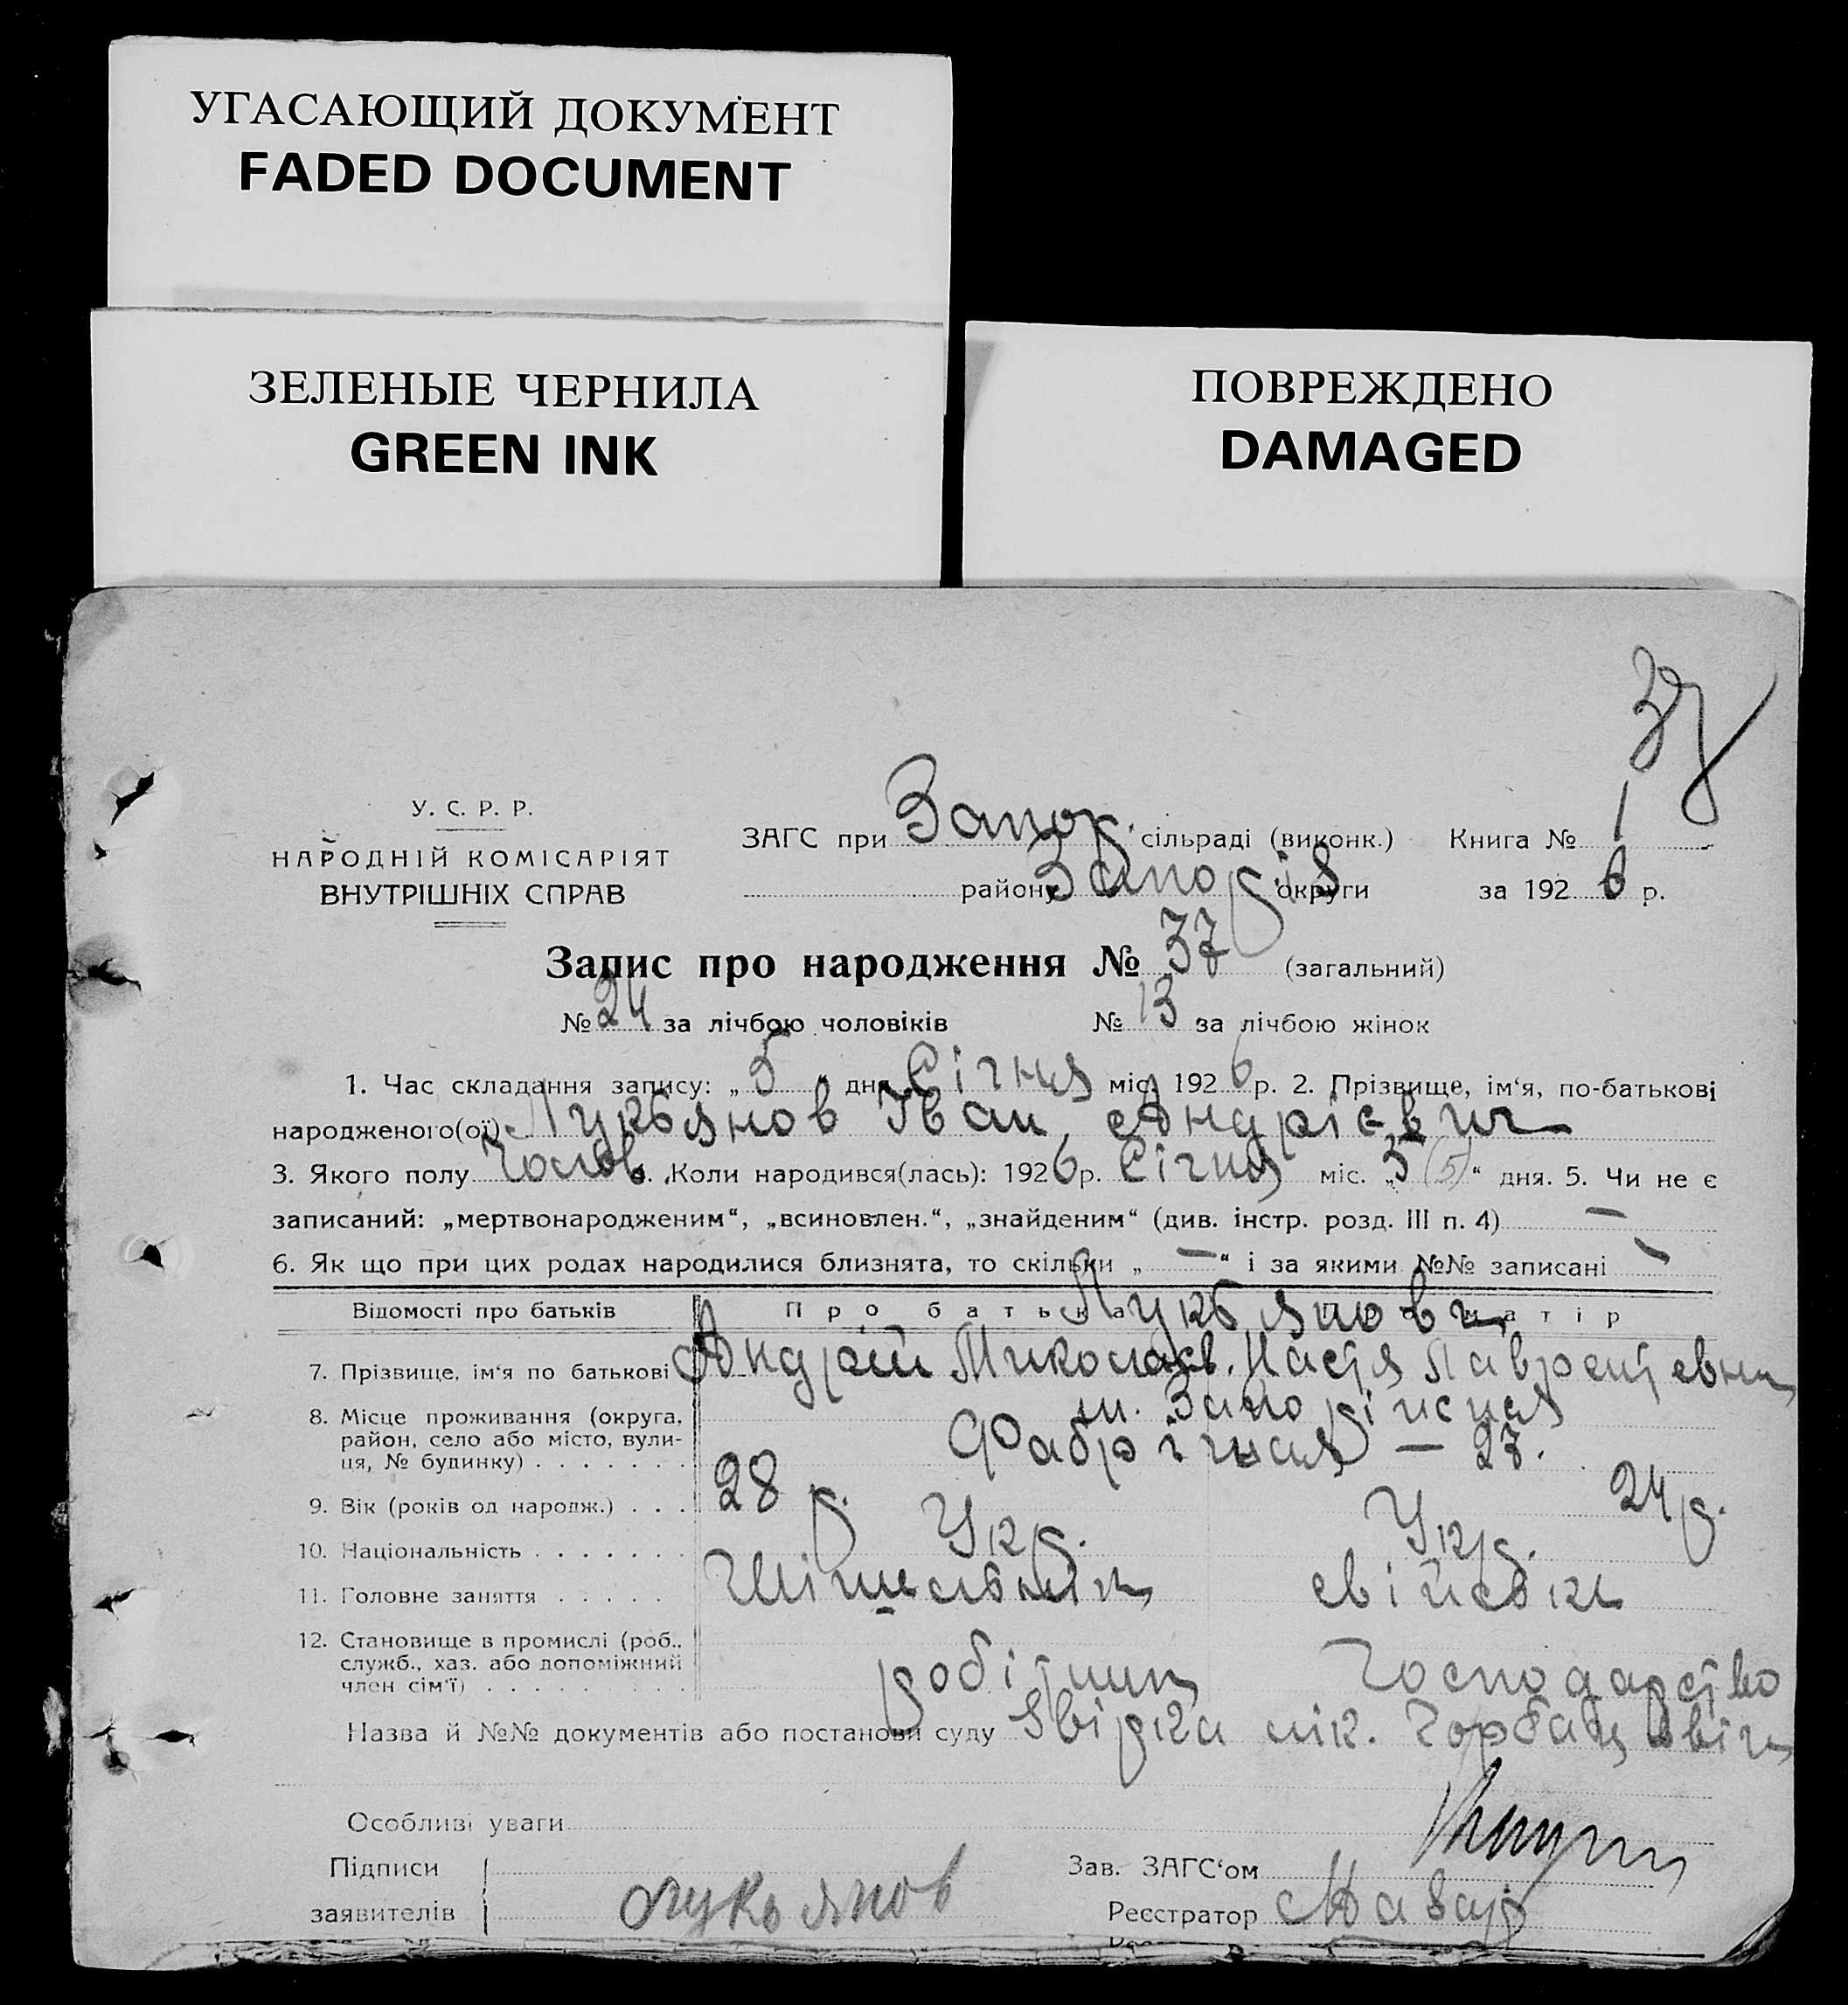 УГАСАЮЩИЙ ДОКУМЕНТ
FADED DOCUMENT
ЗЕЛЕНЫЕ ЧЕРНИЛА
GREEN INK
ПОВРЕЖДЕНО
DAMAGED
37
У. С. Р. Р.
НАРОДНІЙ КОМІСАРІЯТ
ВНУТРІШНІХ СПРАВ
ЗАГС при Запор. сільраді (виконк.) Книга № 1
району Запоріз округи за 1926 р.
Запис про народження № 37 (загальний)
№ 24 за лічбою чоловіків № 13 за лічбою жінок
1. Час складання запису: „5“ дня Січня міс. 1926 р. 2. Прізвище, ім‘я, по-батькові
народженого(ої) Лукьянов Іван Андрієвич
3. Якого полу Чолов. 4. Коли народився(лась): 1926 р. Січня міс. „5 (5)“ дня. 5. Чи не є
записаний: „мертвонародженим“, „всиновлен.“, „знайденим“ (див. інстр. розд. III п. 4) —
6. Як що при цих родах народилися близнята, то скільки „—“ і за якими №№ записані —
Відомості про батьків Про батька Лукьянови матір
7. Прізвище, ім‘я по батькові Андрій Миколаєв. Настя Лаврентєвна
8. Місце проживання (округа, район, село або місто, вулиця, № будинку) . . . . . . . м. Запоріжжя
Фабрічная — 23.
9. Вік (років од народж.) . . . 28 р. 24 р.
10. Національність . . . . . . . Укр. Укр.
11. Головне заняття . . . . . свійські
12. Становище в промислі (роб., служб., хаз. або допоміжний член сім‘ї) . . . . . . . . . робітник господарство
Назва й №№ документів або постанови суду Звірка лік.
Особливі уваги
Підписи
заявителів Лукьянов
Зав. ЗАГС‘ом
Реєстратор Мазар